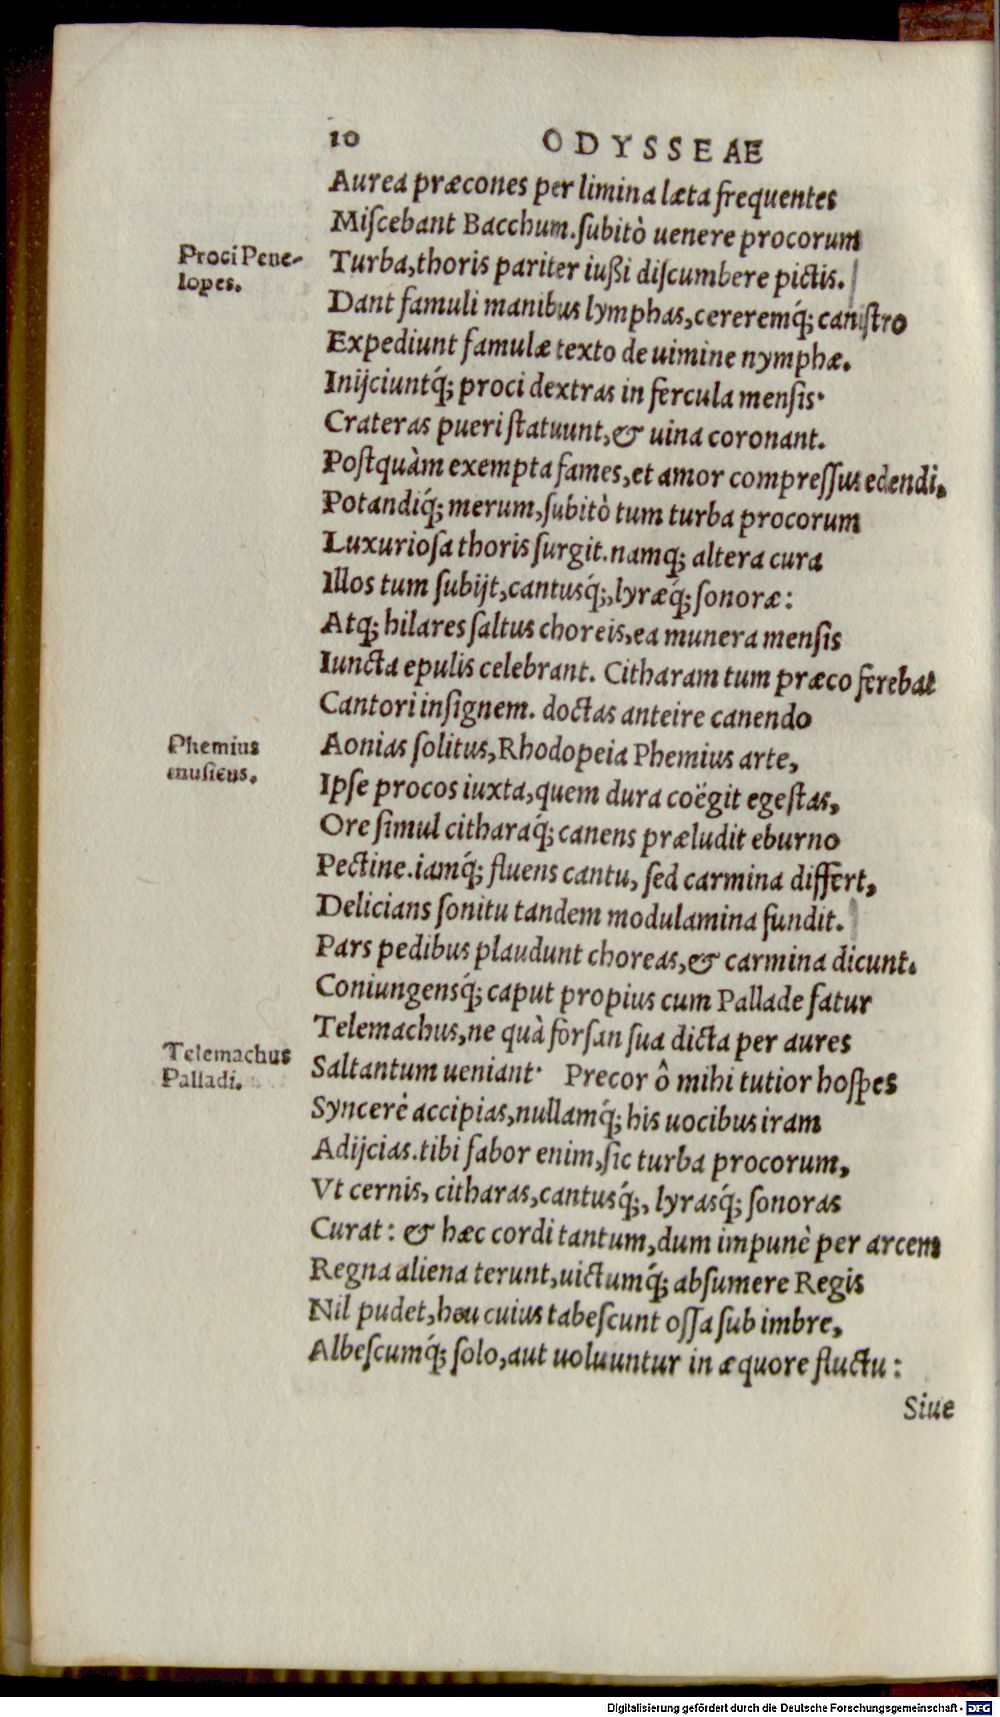 10 ODYSSEAE
Aurea præcones per limina læta frequentes
Miſcebant Bacchum. ſubitò uenere procorum
Proci Pene-
lopes.
Turba, thoris pariter iußi diſcumbere pictis.
Dant famuli manibus lymphas, cereremq́; caniſtro
Expediunt famulæ texto de uimine nymphæ.
Inijciuntq́; proci dextras in fercula mensis·
Crateras pueri ſtatuunt, & uina coronant.
Poſtquàm exempta fames, et amor compreſſus edendi,
Potandiq́; merum, ſubitò tum turba procorum
Luxurioſa thoris ſurgit. namq; altera cura
Illos tum ſubijt, cantusq́;, lyræq́; ſonoræ:
Atq; hilares ſaltus choreis, ea munera menſis
Iuncta epulis celebrant. Citharam tum præco ferebat
Cantori inſignem. doctas anteire canendo
Phemius
muſicus.
Aonias ſolitus, Rhodopeia Phemius arte,
Ipſe procos iuxta, quem dura coëgit egeſtas,
Ore ſimul citharaq́; canens præludit eburno
Pectine. iamq́; fluens cantu, ſed carmina differt,
Delicians ſonitu tandem modulamina fundit.
Pars pedibus plaudunt choreas, & carmina dicunt.
Coniungensq́; caput propius cum Pallade fatur
Telemachus, ne quà forſan ſua dicta per aures
Telemachus
Palladi.
Saltantum ueniant· Precor ô mihi tutior hoſpes
Syncerè accipias, nullamq́; his uocibus iram
Adijcias. tibi fabor enim, ſic turba procorum,
Vt cernis, citharas, cantusq́;, lyrasq́; ſonoras
Curat: & hæc cordi tantum, dum impunè per arcem
Regna aliena terunt, uictumq́; abſumere Regis
Nil pudet, heu cuius tabeſcunt oſſa ſub imbre,
Albeſcumq́; ſolo, aut uoluuntur in æquore fluctu:
Siue
Digitalisierung gefördert durch die Deutsche Forschungsgemeinschaft - DFG